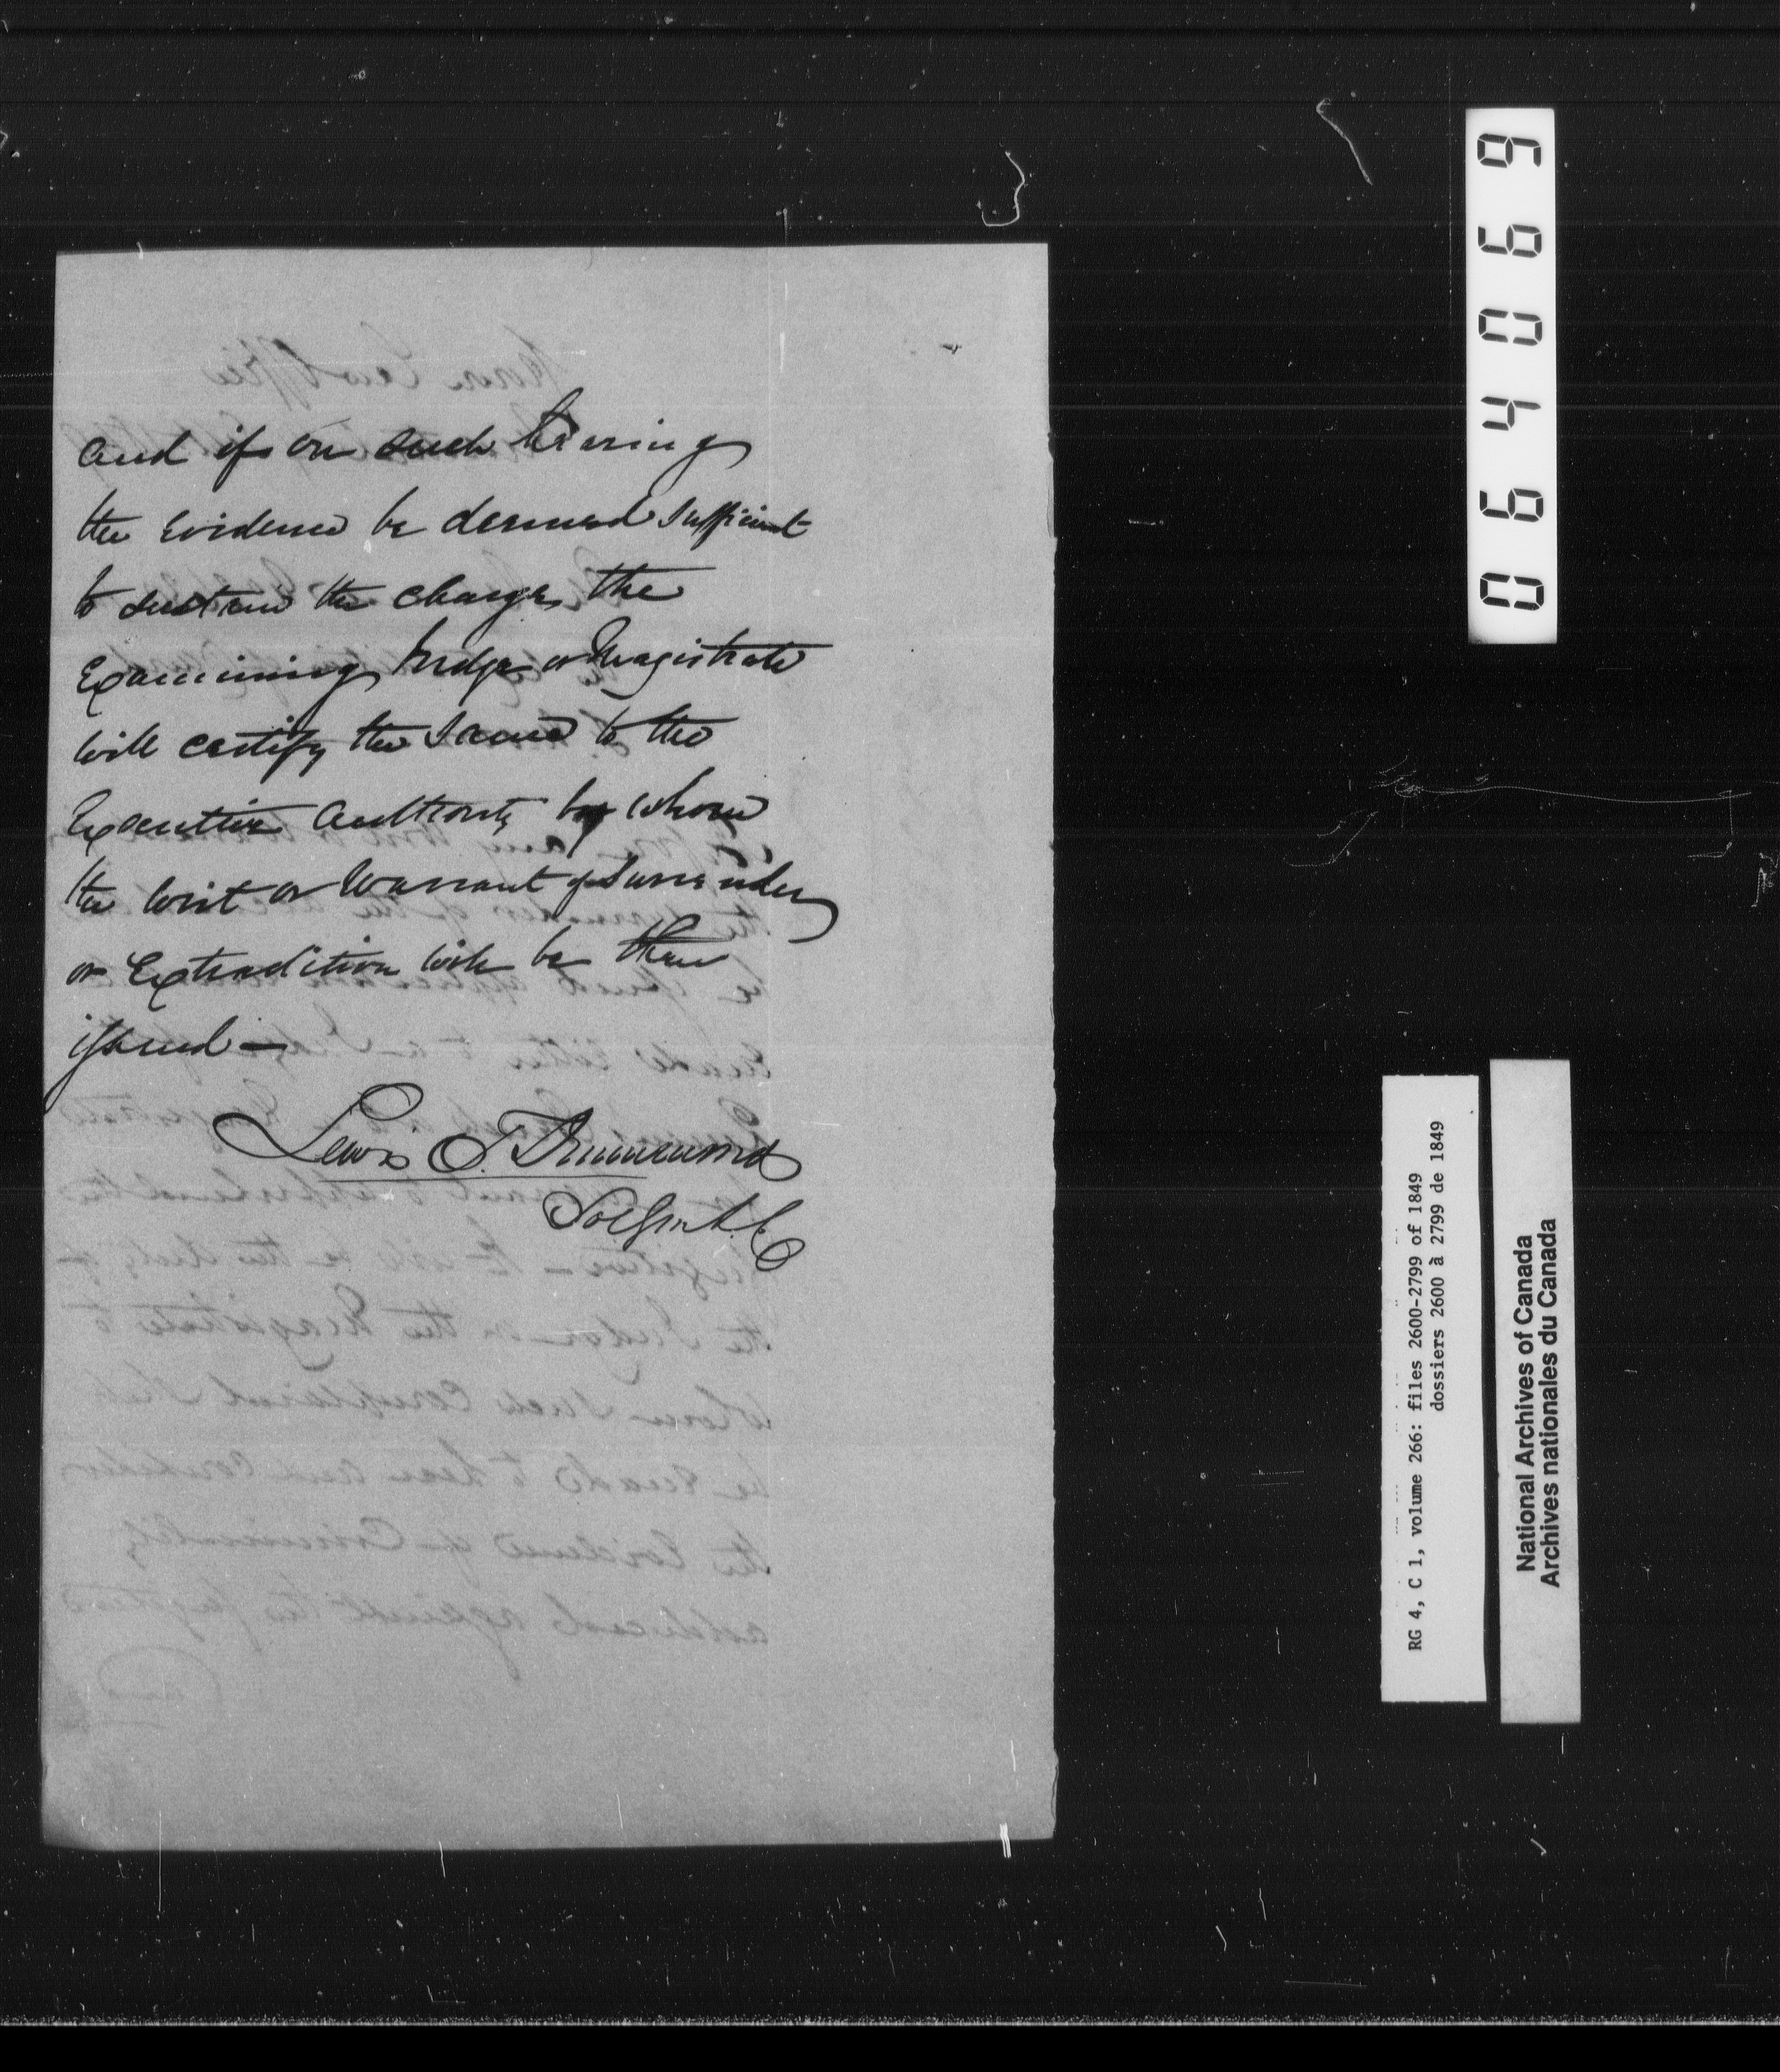 and if on such hearing
the evidence be deemed sufficient
to sustain the charge, the
Examining Judge or Magistrate
will certify the same to the
Executive authority by whom
the writ or Warrant of Surrender
or Extradition will be then
issued —
Lewis T. Drummond
Sol Genl L C
064069
RG 4, C 1, volume 266: files 2600-2799 of 1849
dossiers 2600 à 2799 de 1849
National Archives of Canada
Archives nationales du Canada